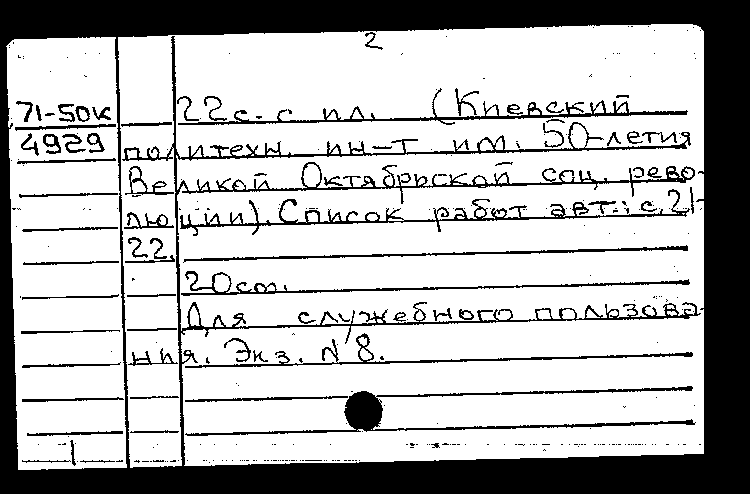 2
71-50к 22 с. с ил. (Киевский
4929 политехн. ин-т им. 50-летия
Великой Октябрьской соц. рево-
люции). Список работ авт.: с. 21-
22.
20 см.
Для служебного пользова-
ния. Экз. N 8.